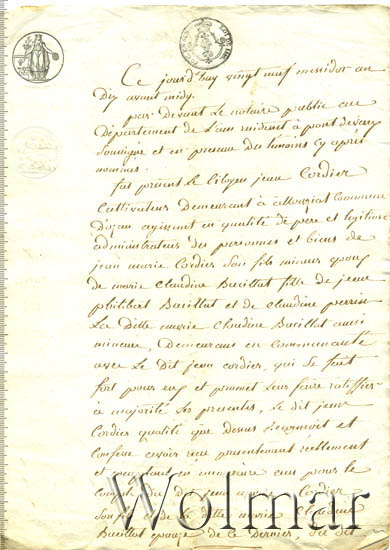 Ce jourd'huy vingt neuf messidor an
Dix avant midy.
par Devant Le notaire publie au
Département de L'ain residents à pont devaux
Soussigné et en presence Des temoins Cy après
nommés.
fut présent Le Citoyen jean Cordier
Cultivateur Demeurant à commune
Dozan agissant en qualité de pere et legitime
administrateur des personnes et biens de
jean marie Cordier Son fils mineur epoux
de marie Claudine Buillat fille de jean
philibert Buillat et de Claudine perrin
La Ditte marie Claudine Buillat aussi
mineure, Demeurans en Communauté
avec Le Dit jean Cordier, qui Se fait
fort pour eux et promet Leur faire ratiffier
à majorité Les présentes, Le dit jean
Cordier qualité que Dessus
Confesse avoir reçu presentement reellement
et pour le
Compte du Dit jean marie Cordier
Son fils et de La ditte marie Claudine
Buillat epouze de ce Dernier, Du Dit
Wolmar